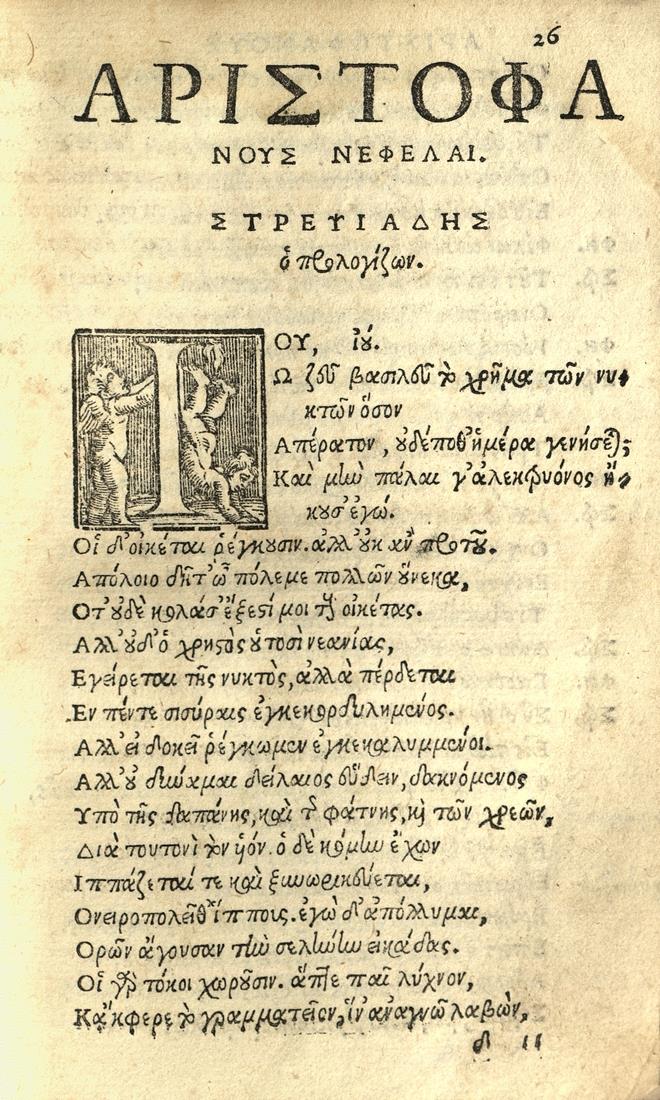 26
ΑΡΙΣΤΟΦΑ
ΝΟΥΣ ΝΕΦΕΛΑΙ.
ΣΤΡΕΨΙΑΔΗΣ
ὁ προλογίζων.
ΙΟΥ, ἰού.
Ω ζεῦ βασιλεῦ τὸ χρῆμα τῶν νυ-
κτῶν ὅσον
Απέρατον, οὐδέποθ' ἡμέρα γενήσεται;
Καὶ μὴν πάλαι γ' ἀλεκτρυόνος ἤ-
κουσ' ἐγώ.
Οἱ δ' οἰκέται ῥέγκουσιν. ἀλλ' οὐκ ἂν προτοῦ.
Απόλοιο δῆτ' ὦ πόλεμε πολλῶν οὕνεκα,
Οτ' οὐδὲ κολάσ' ἔξεστί μοι τοὺς οἰκέτας.
Αλλ' οὐδ' ὁ χρηστὸς οὑτοσὶ νεανίας,
Εγείρεται τῆς νυκτὸς, ἀλλὰ πέρδεται
Εν πέντε σισύραις ἐγκεκορδυλημένος.
Αλλ' εἰ δοκεῖ ῥέγκωμεν ἐγκεκαλυμμένοι.
Αλλ' οὐ δύναμαι δείλαιος εὕδειν, δακνόμενος
Υπὸ τῆς δαπάνης, καὶ τῆς φάτνης, καὶ τῶν χρεῶν,
Διὰ τουτονὶ τὸν υἱόν. ὁ δὲ κόμην ἔχων
Ιππάζεταί τε καὶ ξυνωρικεύεται,
Ονειροπολεῖθ' ἵππους. ἐγὼ δ' ἀπόλλυμαι,
Ορῶν ἄγουσαν τὴν σελήνην εἰκάδας.
Οἱ γὰρ τόκοι χωροῦσιν. ἅπτε παῖ λύχνον,
Κἄκφερε τὸ γραμματεῖον, ἵν' ἀναγνῶ λαβὼν,
δ ii